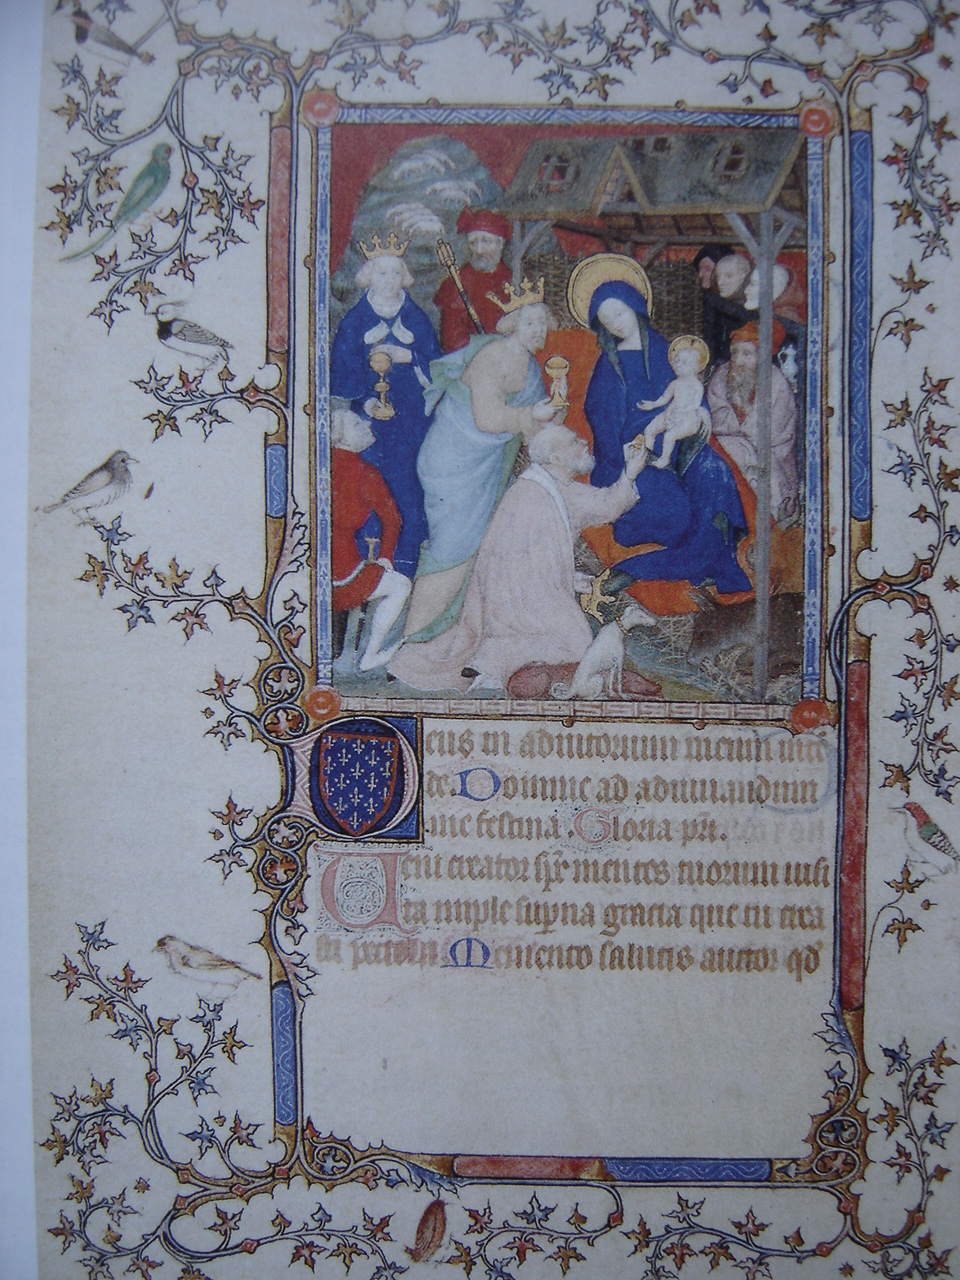 Deus in adiutorium meum inte
de. Domine ad adiuvandum
me festina. Gloria pr̄i.
Veni creator sp̄r mentes tuorum visi
ta imple sup̄na gracia que tu crea
sti pectora Memento salutis auctor qd̄